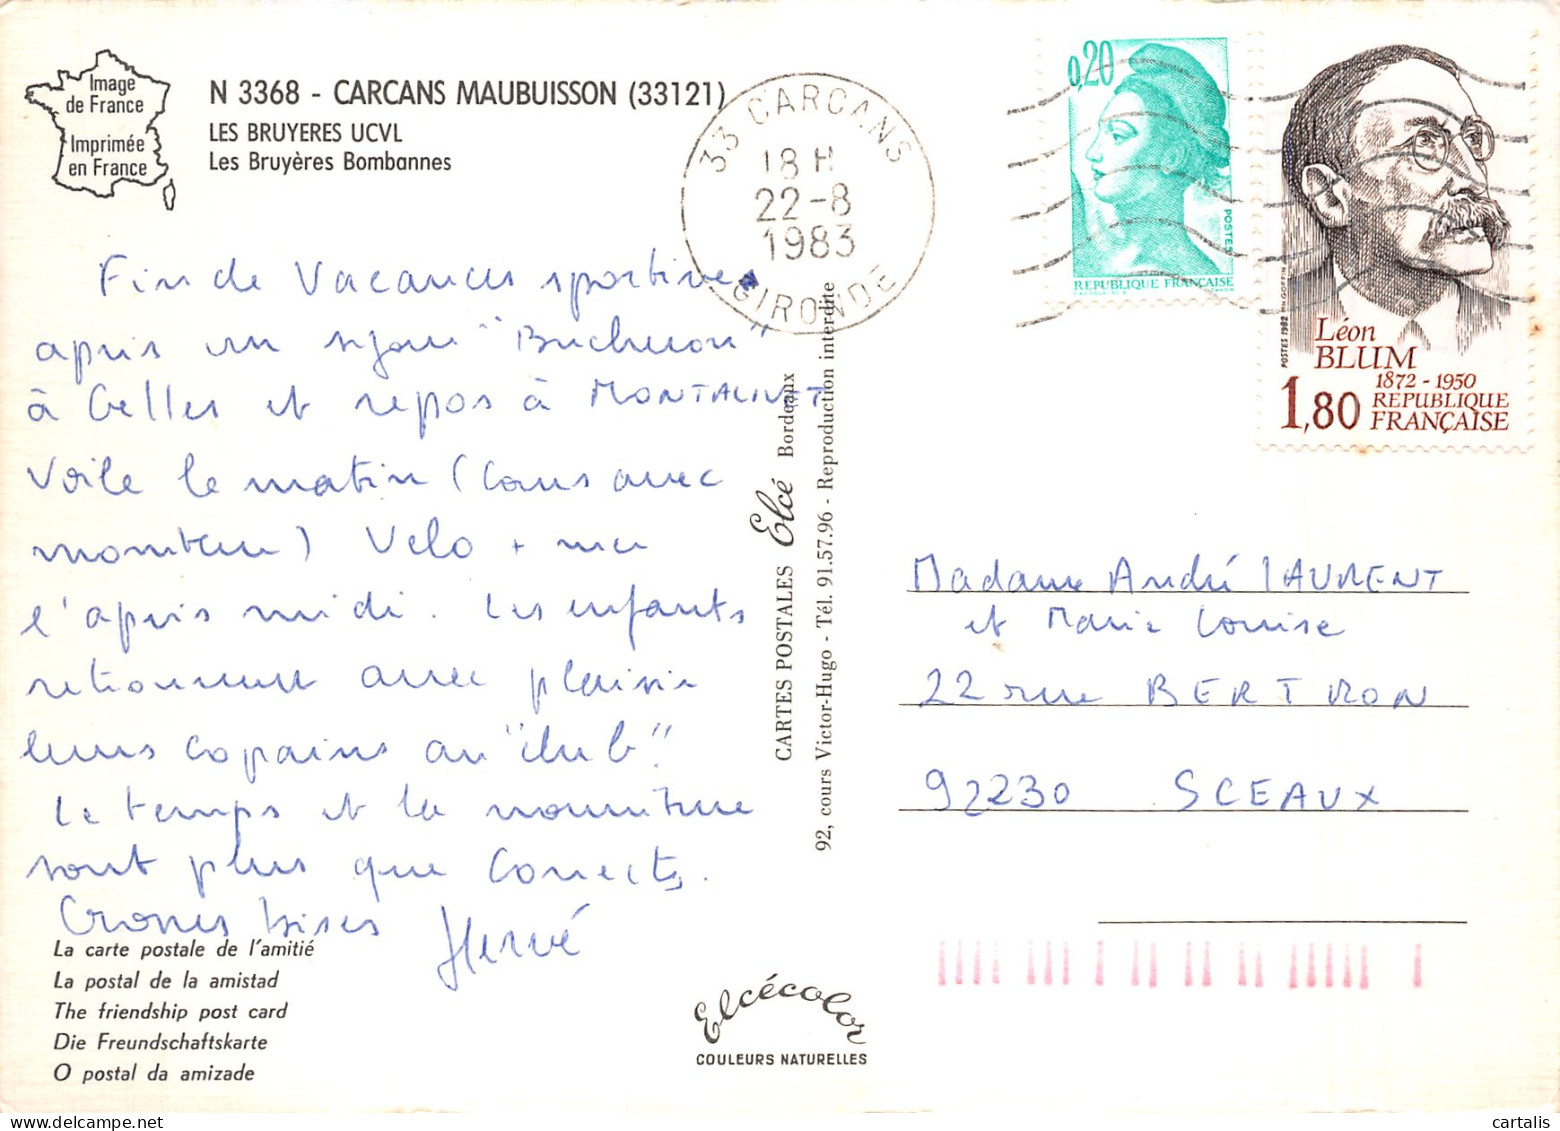 Image
de France
Imprimée
en France
N 3368 - CARCANS MAUBUISSON (33121)
LES BRUYERES UCVL
Les Bruyères Bombannes
33 CARCANS
18 H
22-8
1983
GIRONDE
0,20
POSTES
REPUBLIQUE FRANÇAISE
POSTES 1982
Léon
BLUM
1872 - 1950
1,80 REPUBLIQUE
FRANÇAISE
Fin de Vacances sportives
après un séjour "Bucheron"
à Celles et repos à MONTALIVET
Voile le matin (Cours avec
moniteur) Velo + mer
l'après midi. Les enfants
retrouvent avec plaisir
leurs copains au "club".
Le temps et la nourriture
sont plus que corrects.
Grosses bises Hervé
La carte postale de l'amitié
La postal de la amistad
The friendship post card
Die Freundschaftskarte
O postal da amizade
CARTES POSTALES Elcé Bordeaux
92, cours Victor-Hugo - Tél. 91.57.96 - Reproduction interdite
Madame André LAURENT
et Marie Louise
22 rue BERTRON
92230 SCEAUX
Elcécolor
COULEURS NATURELLES
cartalis